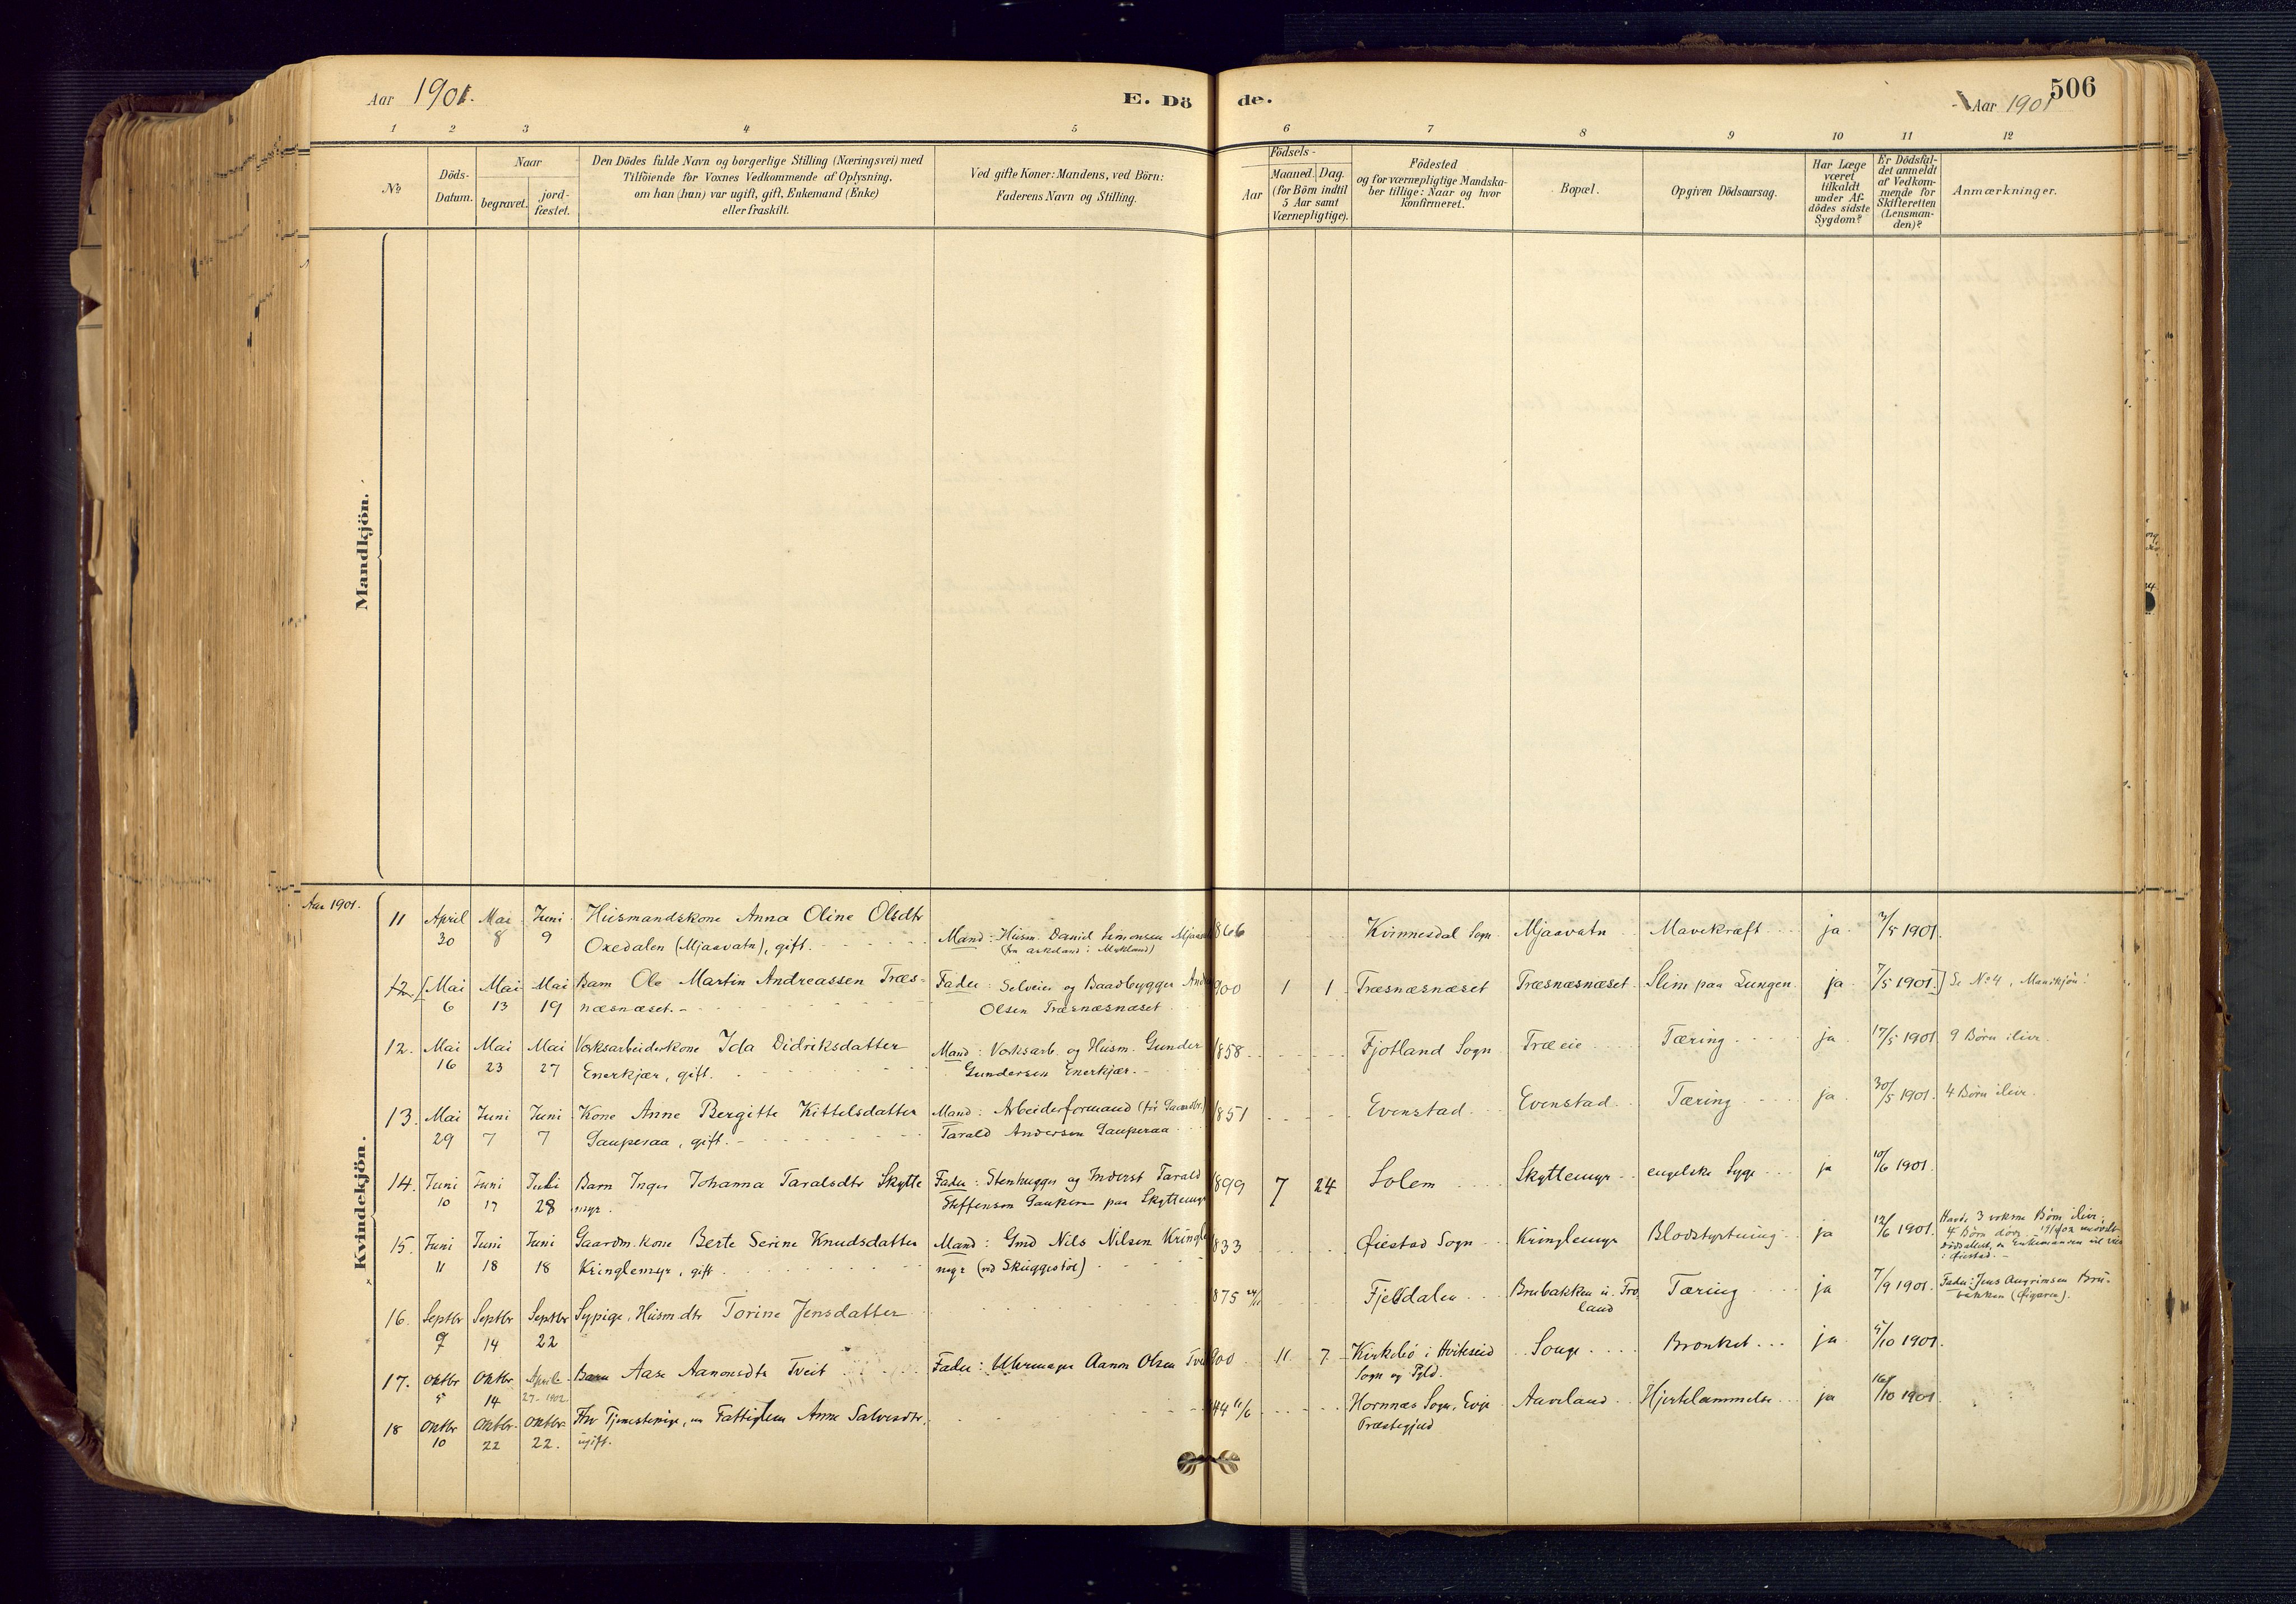 Aar 1901.
E. Dö
de.
506
Aar 1901
1 2 3 4 5 6 7 8 9 10 11 12
No
Döds-
Datum.
Naar
begravet.
jord-
fæstet.
Den Dödes fulde Navn og borgerlige Stilling (Næringsvei) med
Tilföiende for Voxnes Vedkommende af Oplysning,
om han (hun) var ugift, gift, Enkemand (Enke)
eller fraskilt.
Ved gifte Koner: Mandens, ved Börn:
Faderens Navn og Stilling.
Födsels-
Aar
Maaned. Dag.
(for Börn indtil
5 Aar samt
Værnepligtige).
Födested
og for værnepligtige Mandska-
ber tillige: Naar og hvor
konfirmeret.
Bopæl.
Opgiven Dödsaarsag.
Har Læge
været
tilkaldt
under Af-
dödes sidste
Sygdom?
Er Dödsfal-
det anmeldt
af Vedkom-
mende for
Skifteretten
(Lensman-
den)?
Anmærkninger.
Mandkjön.
Kvindekjön.
Aar 1901.
11 April 30 Mai 8 Juni 9
Husmandskone Anna Oline Olsdtr
Oxedalen (Mjaavatn), gift.
Mand: Husm. Daniel Simonsen
1866 Kvinnesdal Sogn Mjaavatn Mavekræft ja 3/5 1901.
12. [Mai 6 Mai 13 Mai 19
Barn Ole Martin Andreassen Træs-
næsnæset.
Fader: Selveier og Baadbygger
Olsen Træsnæsnæset
900 1 1 Træsnæsnæset Træsnæsnæset Slim paa Lungen ja 7/5 1901.] Se No 4, Mandkjön!
12. Mai 16 Mai 23 Mai 27
Verksarbeiderkone Ida Didriksdatter
Enerkjær, gift.
Mand: Verksarb. og Husm. Gunder
Gundersen Enerkjær.
1858 Fjotland Sogn Træeie Tæring ja 17/5 1901 9 Børn ilive.
13. Mai 29 Juni 7 Juni 7
Kone Anne Bergitte Kittelsdatter
Gauperaa, gift.
Mand: Arbeiderformand
Tarald Andersen Gauperaa
1851 Evenstad Evenstad Tæring ja 30/5 1901. 4 Børn ilive.
14. Juni 10 Juni 17 Juli 28
Barn Inger Johanna Taralsdtr Skytte
myr.
Fader: Stenhugger og Inderst Tarald
Steffensen paa Skyttemyr
1899 7 24 Solem Skyttemyr engelske Syge ja 10/6 1901.
15. Juni 11 Juni 18 Juni 18
Gaardm. kone Berte Serine Knudsdatter
Kringlemyr, gift
Mand: Gmd Nils Nilsen Kringle
myr (ved Skuggestøl)
833 Øiestad Sogn Kringlemyr Blodstyrtning ja 12/6 1901. Havde 3 voksne Børn ilive,
4 Børn døde
i Øiestad.
16. Septbr 7 Septbr 14 Septbr 22
Sypige, Husm.dtr Torine Jensdatter
875 Fjeldalen Brubakken u. Fro
land Tæring ja 7/9 1901. Fader: Jens Bru-
bakken
17. Oktbr 5 Oktbr 14 April 27-1902
Barn Aase Aanonsdtr Tveit
Fader: Uhrmager Aanon Olsen
900 11 7 Kirkebø i Hvitseid
Sogn og Pgld. Songe Bronkit ja 5/10 1901.
18 Oktbr 10 Oktbr 22 Oktbr 22.
Fhv Tjenestepige, nu Fattiglem Anne Salvesdtr,
ugift.
44 11/6 Hornnæs Sogn, Evje
Præstegjeld Aaveland Hjertelammelse ja 16/10 1901.